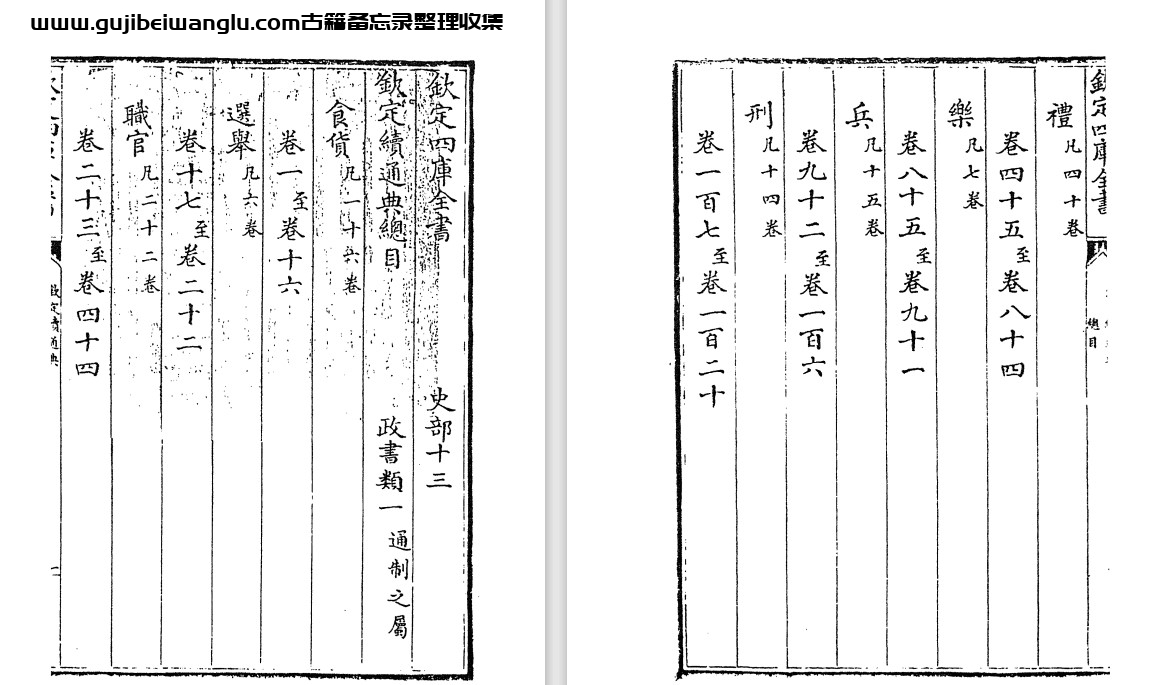 www.gujibeiwanglu.com古籍备忘录整理收集
欽定四庫全書 史部十三
欽定續通典總目 政書類一 通制之屬
食貨 凡一十六卷
卷一至卷十六
選舉 凡六卷
卷十七至卷二十二
職官 凡二十二卷
卷二十三至卷四十四
欽定續通典
一
欽定四庫全書
總目
禮 凡四十卷
卷四十五至卷八十四
樂 凡七卷
卷八十五至卷九十一
兵 凡十五卷
卷九十二至卷一百六
刑 凡十四卷
卷一百七至卷一百二十